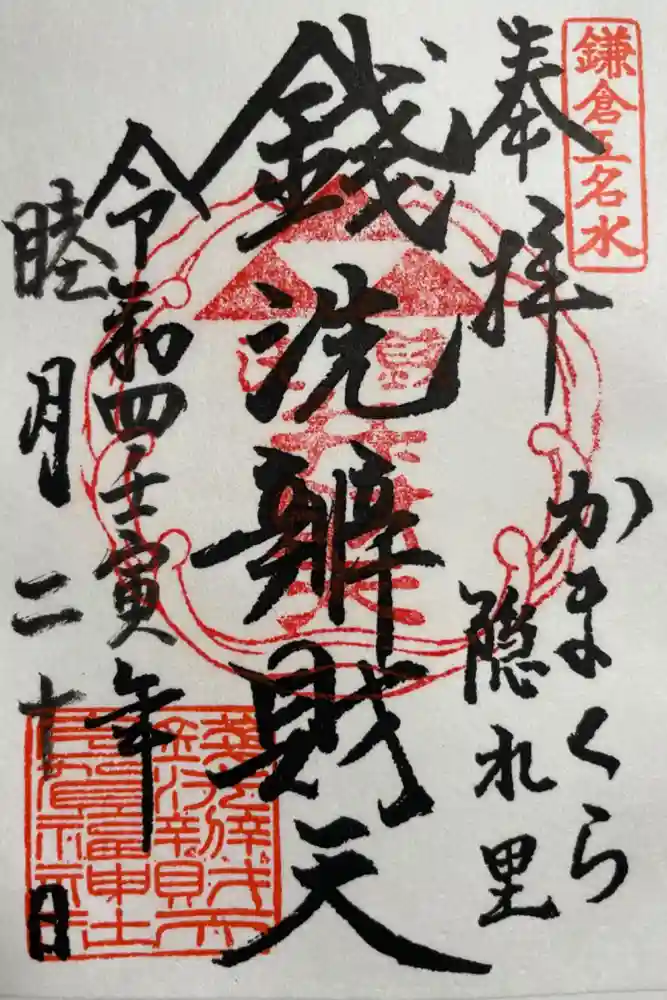 鎌倉五名水
奉拝
かまくら
隠れ里
錢洗辨財天
令和四壬寅年
睦月二十日